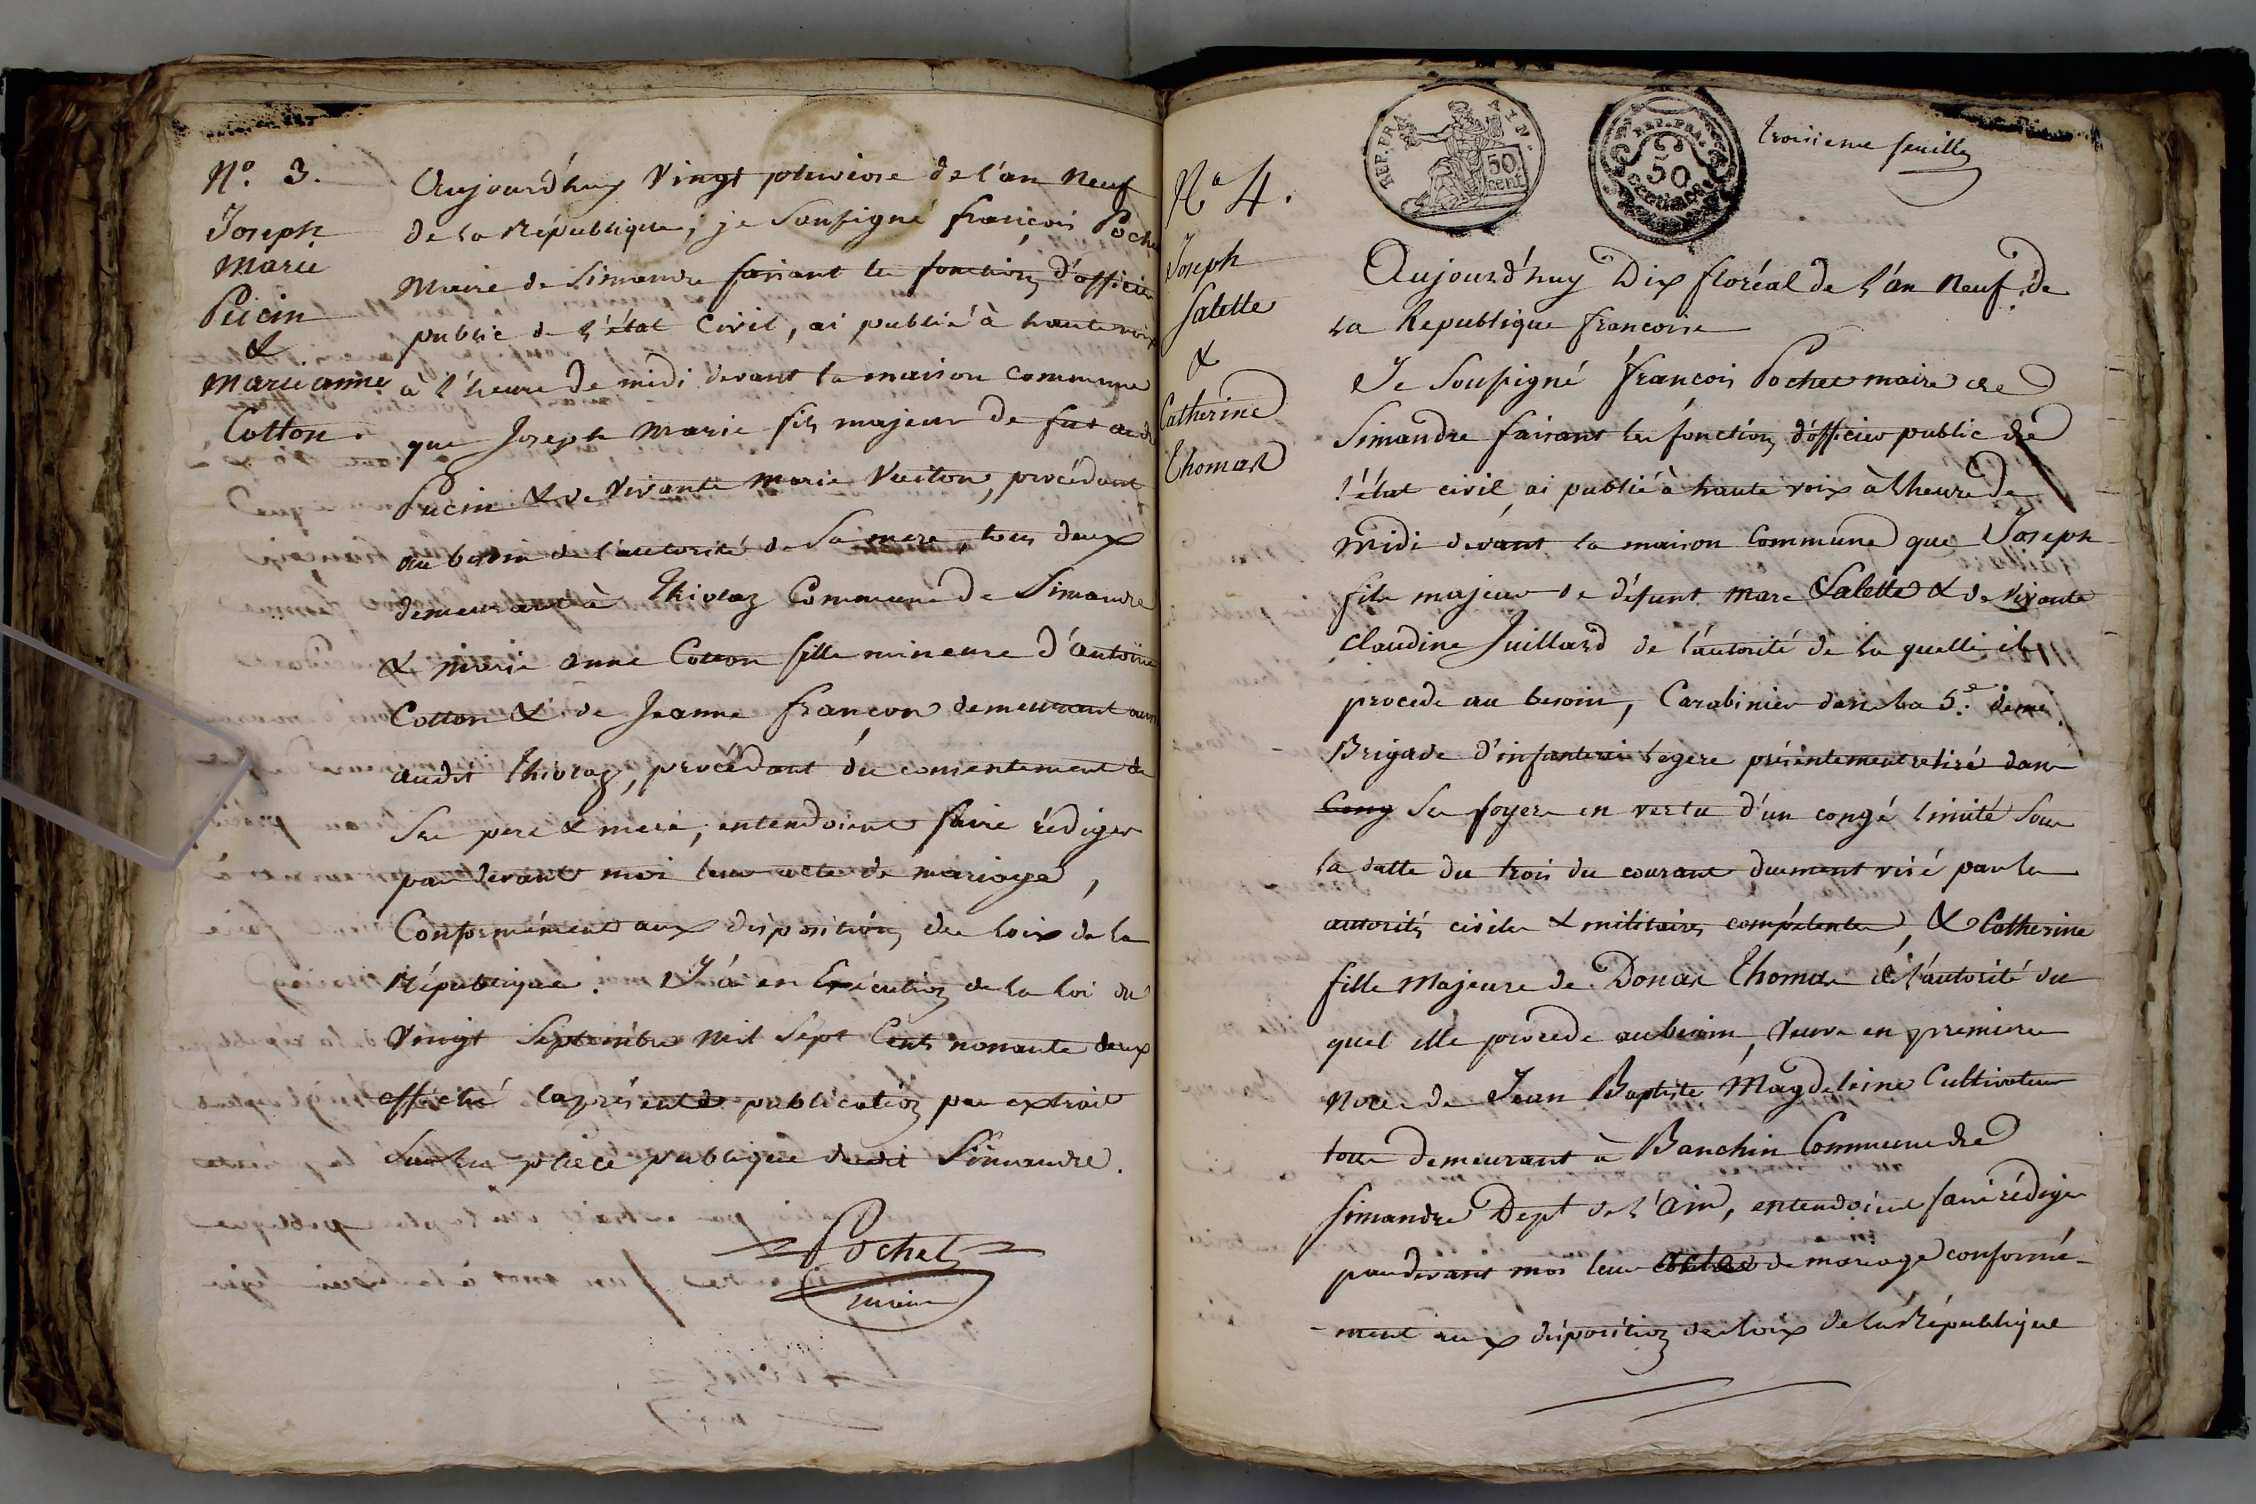 N.o 3.
Joseph
Marie
Pucin
&
Marie anne
Cotton.
Aujourd'huy Vingt pluviose de l'an Neuf
de la République, je Soussigné françois Poche
Maire de Simandre faisant les fonctions d'officier
public de l'état Civil, ai publié à haute voix
à l'heure de midi devant la maison commune
que Joseph Marie fils majeur de
Pucin & de vivante Marie Vuiton, procédant
au besoin de l'autorité de Sa mere, tous deux
demeurant à Thioraz Commune de Simandre
& Marie anne Cotton fille mineure d'antoine
Cotton & de Jeanne françon demeurant aussi
audit Thioraz, procédant du consentement de
Ses pere & mere, entendoient faire rédiger
par devant moi leur acte de mariage,
Conformément aux dispositions des loix de la
République. J'ai en Exécution de la loi du
Vingt Septembre Mil Sept Cents nonante deux
affiché la présente publication par extrait
Sur la place publique dudit Simandre.
Pochet
maire
troisieme feuille
REP. FRA
50
cent
REP. FRA.
50
centimes
N.o 4.
Joseph
Salette
&
Catherine
Thomas
Aujourd'huy Dix floréal de l'an Neuf de
la Republique francoise
Je Soussigné françois Pochet maire de
Simandre faisant les fonctions d'officier public de
l'état civil, ai publié à haute voix à l'heure de
midi devant la maison Commune que Joseph
fils majeur de défunt Marc Salette & de vivante
Claudine Juillard de l'autorité de la quelle il
procede au besoin, Carabinier dans la 5.e demi
Brigade d'infanterie legere présentement retiré dans
Cong Ses foyers en vertu d'un congé limité Sous
la datte du trois du courant duement visé par les
autorités civiles & militaires compétentes, & Catherine
fille Majeure de Donat Thomas de l'autorité du
quel elle procede au besoin, Veuve en premieres
Noces de Jean Baptiste Magdeleine Cultivateurs
tous demeurant à Banchin Commune de
Simandre Dept de l'Ain, entendoient faire rédiger
par devant moi leur acte de mariage conformé-
-ment aux dispositions des loix de la République